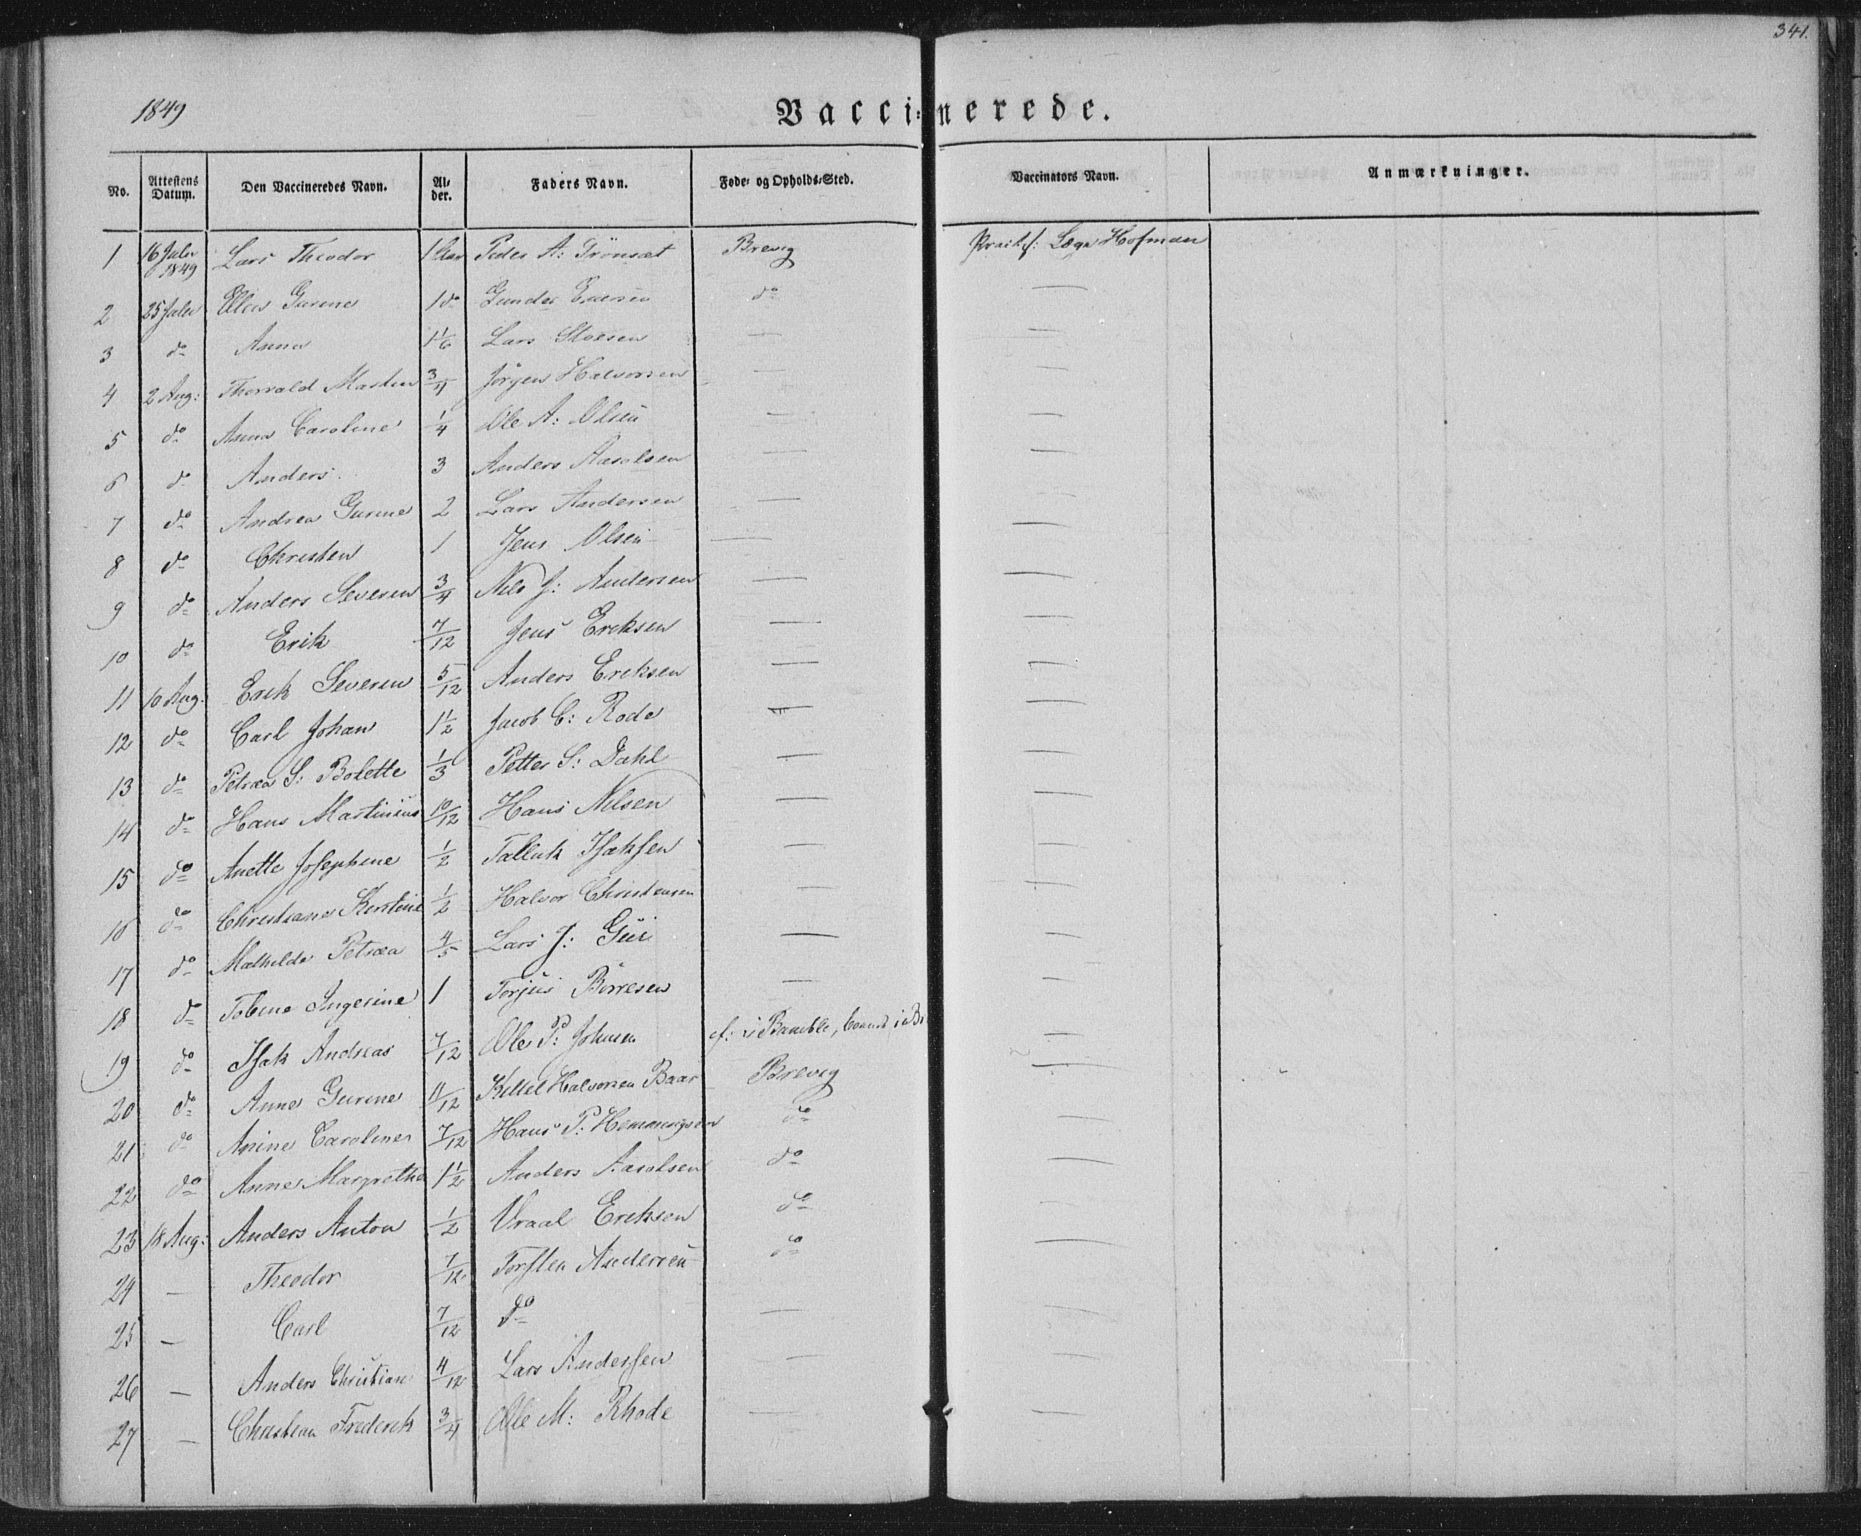 341.
1849
Vaccinerede.
No. Attestens Datum. Den Vaccineredes Navn. Alder. Faders Navn. Føde- og Opholds-Sted. Vaccinators Navn. Anmærkninger.
1 16 Juli 1849 Lars Theodor 1 Aar Peder A: Trönsæt Brevig Praik f: Læge Hofman
2 25 Juli Elen Gurine 1 do Gunder do —
3 do Anna 1 1/6 Lars — —
4 2 Aug: Thorvald Martin 3/4 Jörgen Halvorsen — —
5 do Anna Caroline 1/4 Ole A: Olsen — —
6 do Anders 3 Anders Aasolsen — —
7 do Andrea Gurine 2 Lars Andersen — —
8 do Christen 1 Jens Olsen — —
9 do Anders Severin 3/4 Nils J: Andersen — —
10 do Erik 7/12 Jens Ereksen — —
11 10 Aug: Erik Severin 5/12 Anders Ereksen — —
12 do Carl Johan 1 1/2 Jacob C: Rode — —
13 do Petrea S: Bolette 1/3 Petter S: Dahl — —
14 do Hans Martinius 10/12 Hans Nelsen — —
15 do Anette Josephine 1/2 Tallak Isaksen — —
16 do Christiane Kerstine 1/2 Halvor Christensen — —
17 do Mathilde Petrea 4/5 Lars J: — —
18 do Tobine Ingerine 1 Torjus Börresen — —
19 do Isak Andreas 7/12 Ole P: Johnsen f: i Bamble, —
20 do Anne Gurine 11/12 Kittel Halvorsen Baar Brevig —
21 do Anine Caroline 7/12 Hans P: Hemmingsen do —
22 do Anne Margrethe 1 1/2 Anders Aasolsen do —
23 18 Aug: Anders Anton 1/2 Vraal Ereksen do —
24 — Theodor 7/12 Torsten Andersen do —
25 — Carl 7/12 do — —
26 — Anders Christian 4/12 Lars Andersen — —
27 — Christian Frederik 3/4 Ole M: Rhode — —